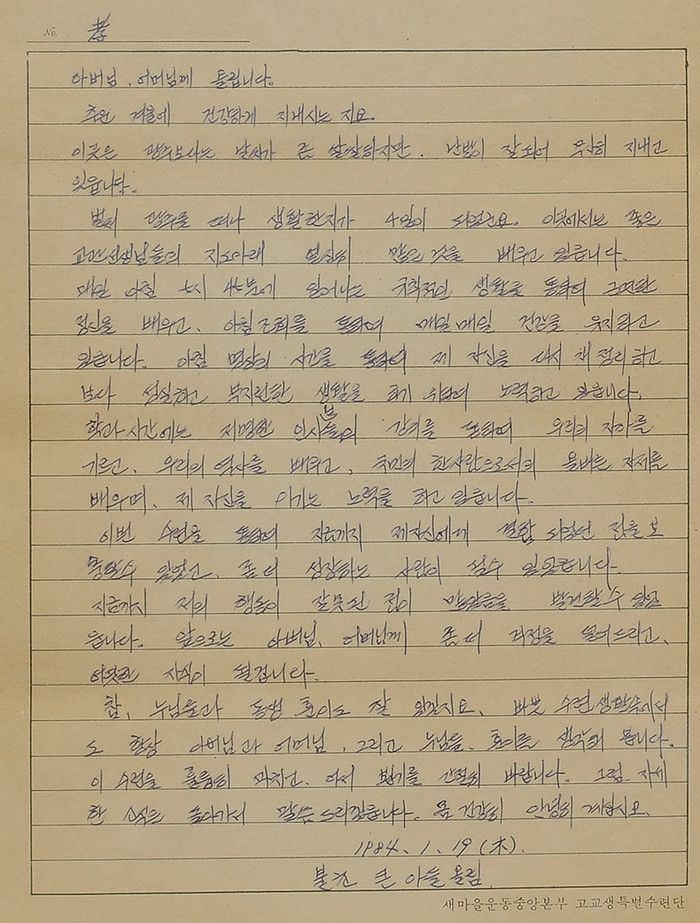 No. 孝
아버님, 어머님께 올립니다.
추운 겨울에 건강하게 지내시는 지요.
이곳은 광주보다는 날씨가 좀 쌀쌀하지만, 난방이 잘되어 무사히 지내고
있읍니다.
벌써 광주를 떠나 생활한지가 4일이 되었군요. 이곳에서는 좋은
교관선생님들의 지도아래 열심히 많은 것을 배우고 있읍니다.
매일 아침 5시 45분에 일어나는 규칙적인 생활을 통하여 근면한
정신을 배우고, 아침조회를 통하여 매일매일 건강을 유지하고
있읍니다. 아침 명상의 시간을 통하여 제 자신을 다시 재정리하고
보다 성실하고 부지런한 생활을 하기 위하여 노력하고 있읍니다.
학과시간에는 저명한 인사분들의 강의를 통하여 우리의 자아를
기르고, 우리의 역사를 배우고, 국민의 한사람으로서의 올바른 자세를
배우며, 제 자신을 이기는 노력을 하고 있읍니다.
이번 수련을 통하여 지금까지 제자신에게 결함 되었던 점을 보
충할수 있었고, 좀더 성장하는 사람이 될수 있겠읍니다.
지금까지 저의 행동이 잘못된 점이 많았음을 발견할 수 있었
읍니다. 앞으로는 아버님, 어머님께 좀 더 걱정을 덜어드리고,
어엿한 자식이 될겁니다.
참, 누님들과 동생 훈이도 잘 있겠지요. 바쁜 수련생활속에서
도 항상 아버님과 어머님, 그리고 누님들, 훈이를 생각해 봅니다.
이 수련을 훌륭히 마치고, 어서 뵙기를 간절히 바랍니다. 그럼 자세
한 소식은 돌아가서 말씀드리겠읍니다. 몸 건강히 안녕히 계십시오.
1984. 1. 19 (木).
불초 큰 아들 올림.
새마을운동중앙본부 고교생특별수련단